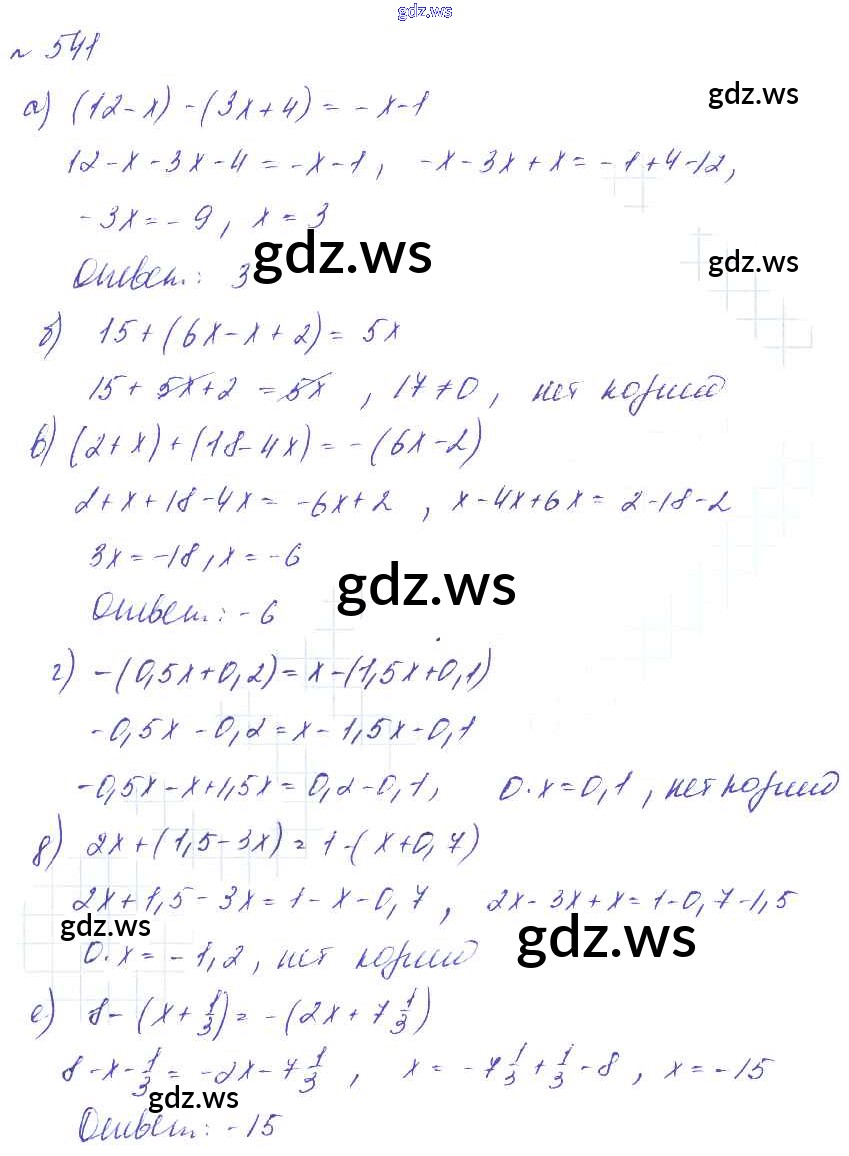 gdz.ws
№ 541
а) (12-x) - (3x+4) = -x-1
gdz.ws
12-x-3x-4 = -x-1, -x-3x+x = -1+4-12,
-3x = -9, x = 3
gdz.ws
gdz.ws
Ответ: 3
б) 15+(6x-x+2) = 5x
15+5x+2 = 5x, 17≠0, нет корней
в) (2+x)+(18-4x) = -(6x-2)
2+x+18-4x = -6x+2, x-4x+6x = 2-18-2
3x = -18, x = -6
gdz.ws
Ответ: -6
г) -(0,5x+0,2) = x-(1,5x+0,1)
-0,5x-0,2 = x-1,5x-0,1
-0,5x-x+1,5x = 0,2-0,1, 0·x = 0,1, нет корней
д) 2x+(1,5-3x) = 1-(x+0,7)
2x+1,5-3x = 1-x-0,7, 2x-3x+x = 1-0,7-1,5
gdz.ws
gdz.ws
0·x = -1,2, нет корней
е) 8-(x+1/3) = -(2x+7 1/3)
8-x-1/3 = -2x-7 1/3, x = -7 1/3+1/3-8, x = -15
gdz.ws
Ответ: -15